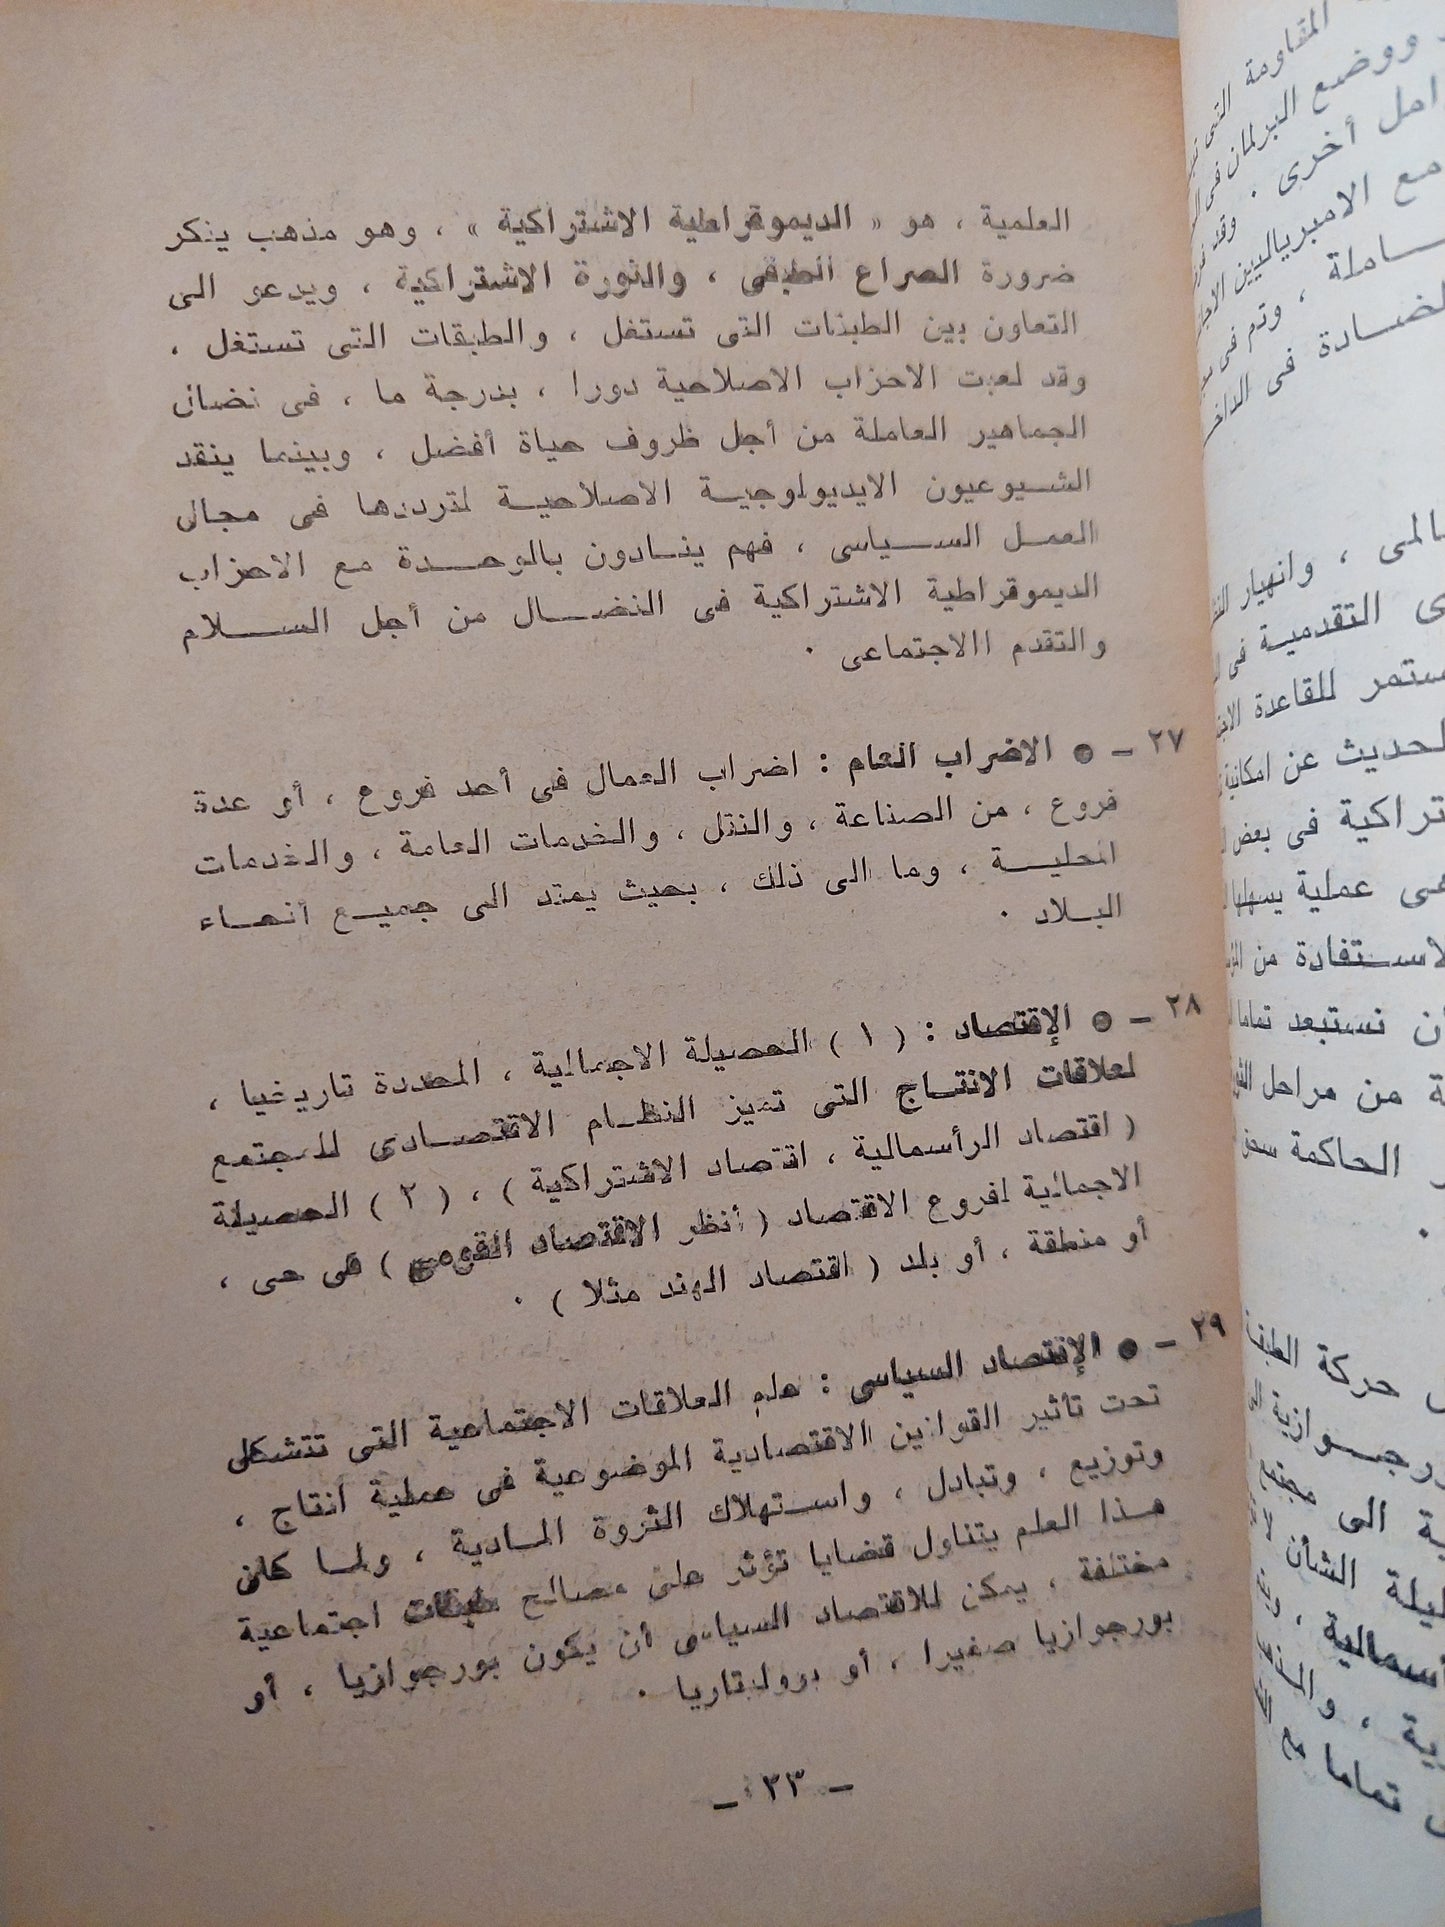 العلمية ، هو « الديموقراطية الاشتراكية » ، وهو مذهب ينكر
ضرورة الصراع الطبقى ، والثورة الاشتراكية ، ويدعو الى
التعاون بين الطبقات التى تستغل ، والطبقات التى تستغل ،
وقد لعبت الاحزاب الاصلاحية دورا ، بدرجة ما ، فى نضال
الجماهير العاملة من أجل ظروف حياة أفضل ، وبينما ينقد
الشيوعيون الايديولوجية الاصلاحية لترددها فى مجال
العمل السياسى ، فهم ينادون بالوحدة مع الاحزاب
الديموقراطية الاشتراكية فى النضال من أجل السلام
والتقدم االاجتماعى ·
٢٧ – ● الاضراب العام : اضراب العمال فى أحد فروع ، أو عدة
فروع ، من الصناعة ، والنقل ، والخدمات العامة ، والخدمات
المحلية ، وما الى ذلك ، بحيث يمتد الى جميع أنحاء
البلاد ·
٢٨ – ● الإقتصاد : ( ١ ) الحصيلة الاجمالية ، المحددة تاريخيا ،
لعلاقات الانتاج التى تميز النظام الاقتصادى للمجتمع
( اقتصاد الرأسمالية ، اقتصاد الاشتراكية ) ، ( ٢ ) الحصيلة
الاجمالية لفروع الاقتصاد ( أنظر الاقتصاد القومى ) فى حى ،
أو منطقة ، أو بلد ( اقتصاد الهند مثلا ) ·
٢٩ – ● الإقتصاد السياسى : علم العلاقات الاجتماعية التى تتشكل
تحت تأثير القوانين الاقتصادية الموضوعية فى عملية انتاج ،
وتوزيع ، وتبادل ، واستهلاك الثروة المادية ، ولما كان
هذا العلم يتناول قضايا تؤثر على مصالح طبقات اجتماعية
مختلفة ، يمكن للاقتصاد السياسى أن يكون بورجوازيا ، أو
بورجوازيا صغيرا ، أو بروليتاريا ·
– ٢٣ –
المقاومة التى
ووضع البرلمان فى
أخرى · وقد
مع الامبرياليين
، وتم فى
فى
، وانهيار
التقدمية فى
للقاعدة
عن امكانية
فى بعض
عملية يسهلها
من
أن نستبعد تماما
من مراحل
الحاكمة
حركة
الى مجتمع
الشأن لا
تماما مع